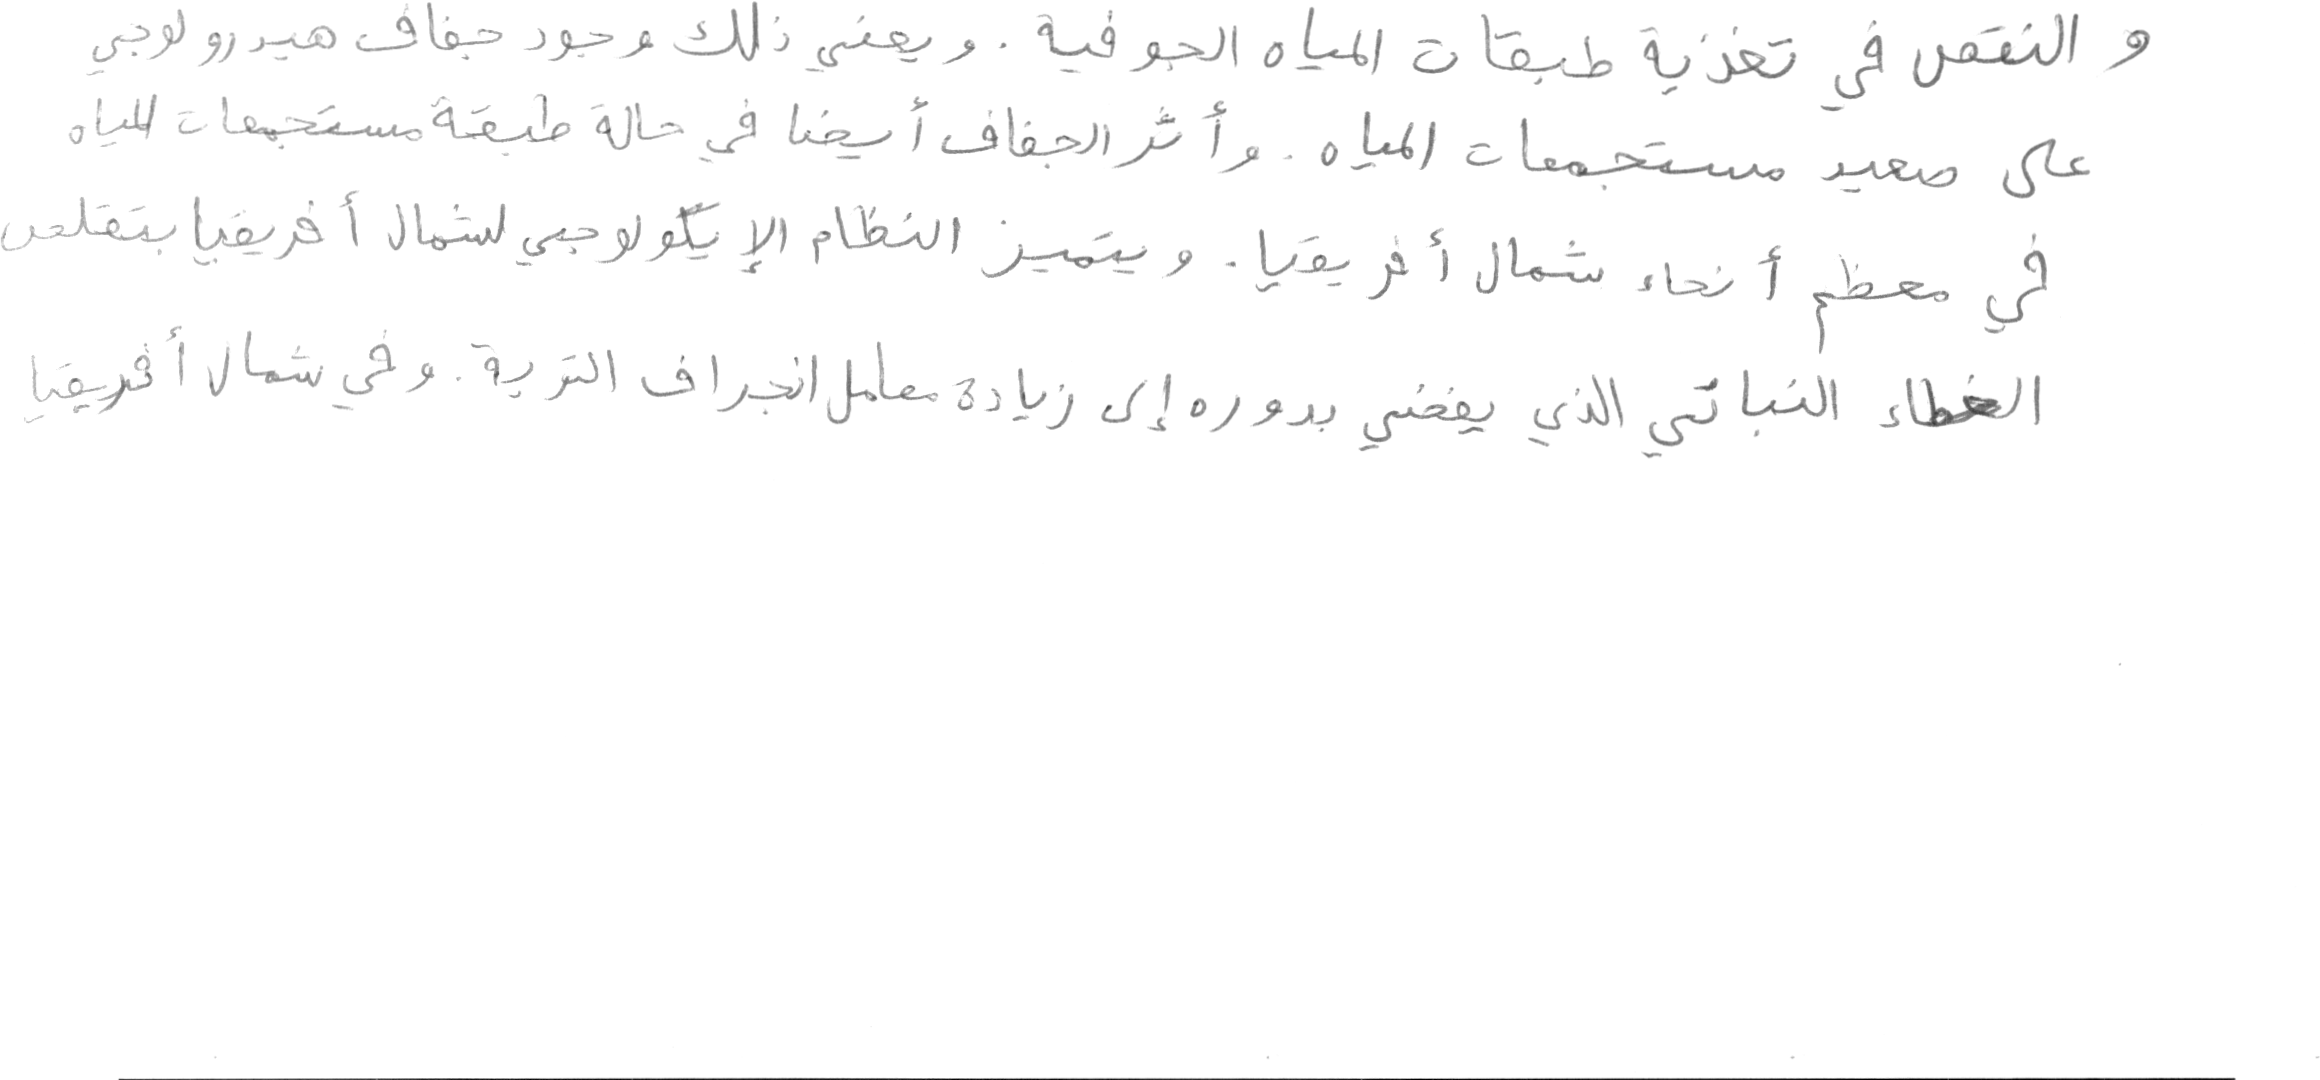 و النقص في تغذية طبقات المياه الجوفية . ويعني ذلك وجود جفاف هيدرولوجي
على صعيد مستجمعات المياه . وأثر الجفاف أيضا في حالة طبقة مستجمعات المياه
في معظم أنحاء شمال أفريقيا . ويتميز النظام الإيكولوجي لشمال أفريقيا بتقلص
الغطاء النباتي الذي يفضي بدوره إلى زيادة معامل انجراف التربة . وفي شمال أفريقيا